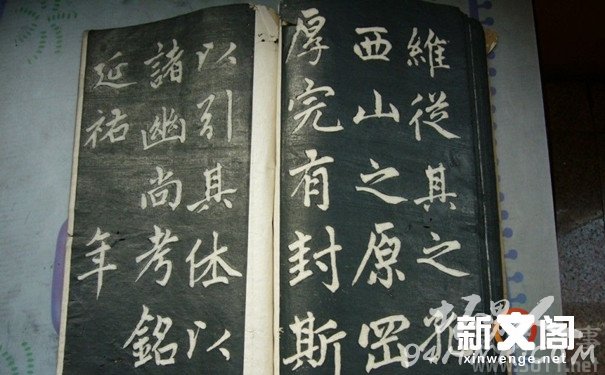 維從其之
西山之原岡
厚完有封斯
以引其休以
諸幽尚考銘
延祐 年
新文阁
xinwenge.net